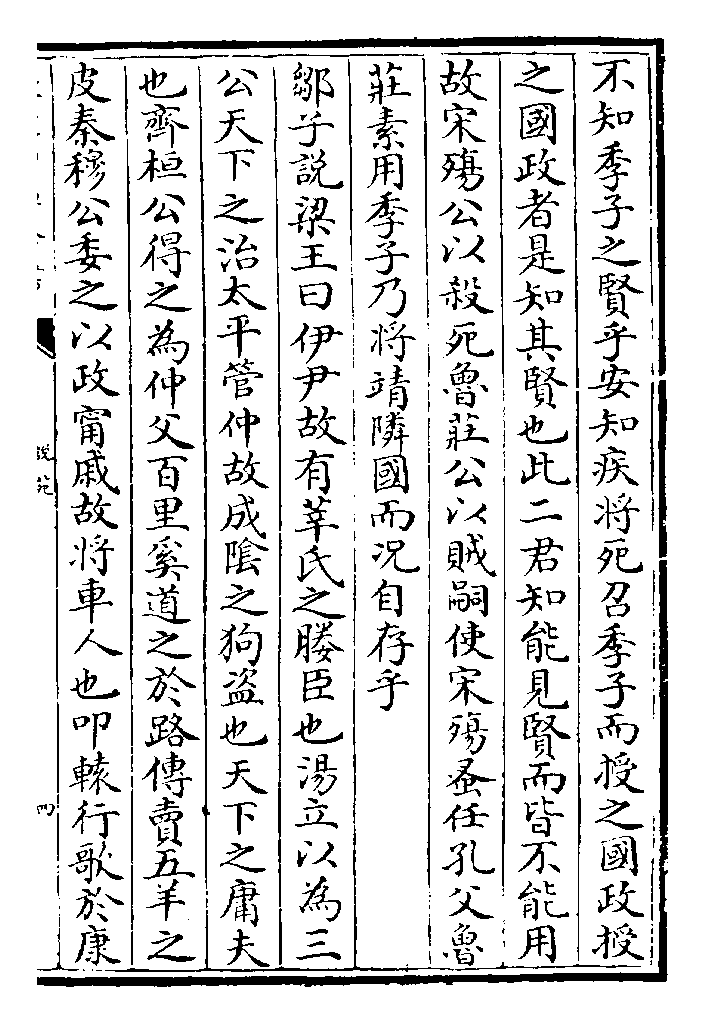 不知季子之賢乎安知疾將死召季子而授之國政授
之國政者是知其賢也此二君知能見賢而皆不能用
故宋殤公以殺死魯莊公以賊嗣使宋殤蚤任孔父魯
莊素用季子乃將靖隣國而况自存乎
鄒子説梁王曰伊尹故有莘氏之媵臣也湯立以為三
公天下之治太平管仲故成隂之狗盗也天下之庸夫
也齊桓公得之為仲父百里奚道之於路傳賣五羊之
皮秦穆公委之以政甯戚故將車人也叩轅行歌於康
説苑
四